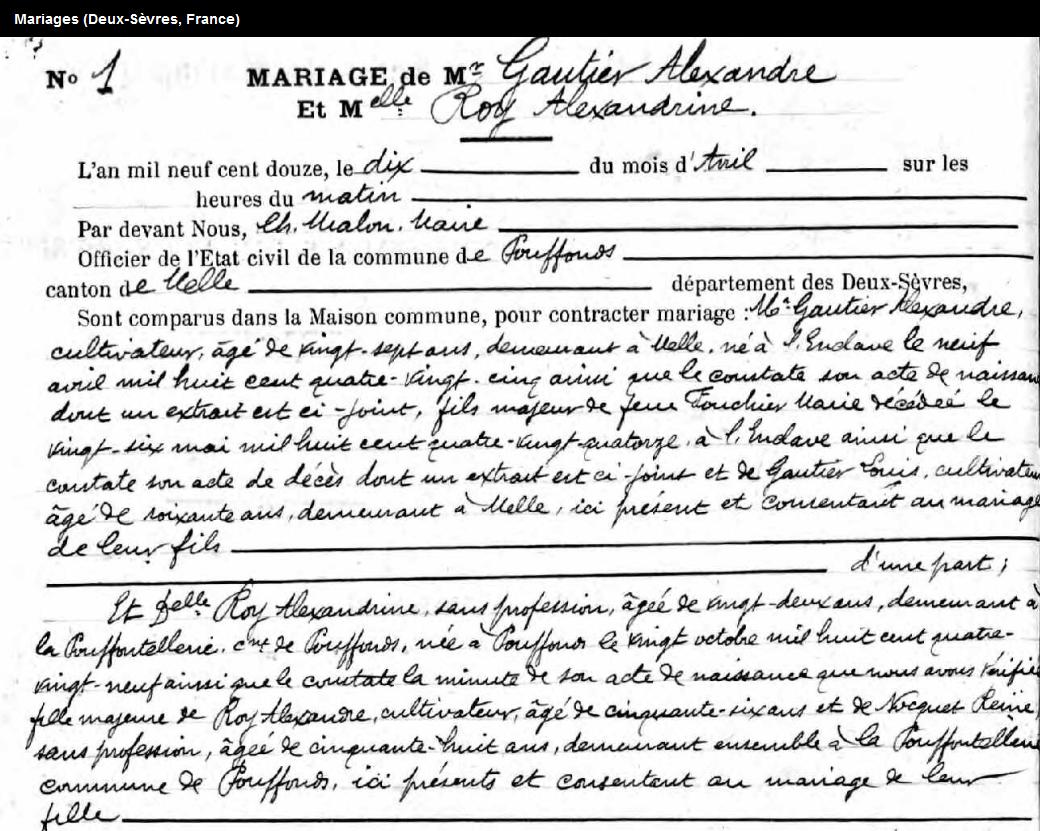 Mariages (Deux-Sèvres, France)
No 1 MARIAGE de Mr Gautier Alexandre
Et Melle Roy Alexandrine.
L'an mil neuf cent douze, le dix du mois d'Avril sur les
heures du matin
Par devant Nous, Ch. Malon. Maire
Officier de l'Etat civil de la commune de Pouffonds
canton de Melle département des Deux-Sèvres,
Sont comparus dans la Maison commune, pour contracter mariage : Mr Gautier Alexandre,
cultivateur, âgé de vingt-sept ans, demeurant à Melle. né à l'Enclave le neuf
avril mil huit cent quatre-vingt-cinq ainsi que le constate son acte de naissan
dont un extrait est ci-joint, fils majeur de feue Fouchier Marie décédée le
vingt-six mai mil huit cent quatre-vingt-quatorze. à l'Enclave ainsi que le
constate son acte de décès dont un extrait est ci-joint et de Gautier Louis, cultivateur
âgé de soixante ans, demeurant à Melle, ici présent et consentant au mariage
de leur fils
d'une part ;
Et Delle Roy Alexandrine, sans profession, âgée de vingt-deux ans, demeurant à
la Pouffontellerie. cne de Pouffonds, née à Pouffonds le vingt octobre mil huit cent quatre-
vingt-neuf ainsi que le constate la minute de son acte de naissance que nous avons vérifié
fille majeure de Roy Alexandre, cultivateur, âgé de cinquante-six ans et de Nocquet Reine,
sans profession, âgée de cinquante-huit ans, demeurant ensemble à la Pouffontellerie
commune de Pouffonds, ici présents et consentant au mariage de leur
fille